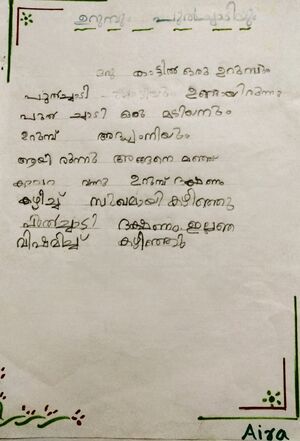 ഉറുമ്പും പുൽച്ചാടിയും
ഒരു കാട്ടിൽ ഒരു ഉറുമ്പും
പുൽച്ചാടി ഉണ്ടായിരുന്നു
പുൽ ചാടി ഒരു മടിയനും
ഉറുമ്പ് അദ്ധ്വാനിയും
ആയി രുന്നു അങ്ങനെ മഞ്ഞു
കാലം വന്നു ഉറുമ്പ് ഭക്ഷണം
കഴിച്ച് സുഖമായി കഴിഞ്ഞു
പുൽച്ചാടി ഭക്ഷണം ഇല്ലതെ
വിഷമിച്ച് കഴിഞ്ഞു
Aira